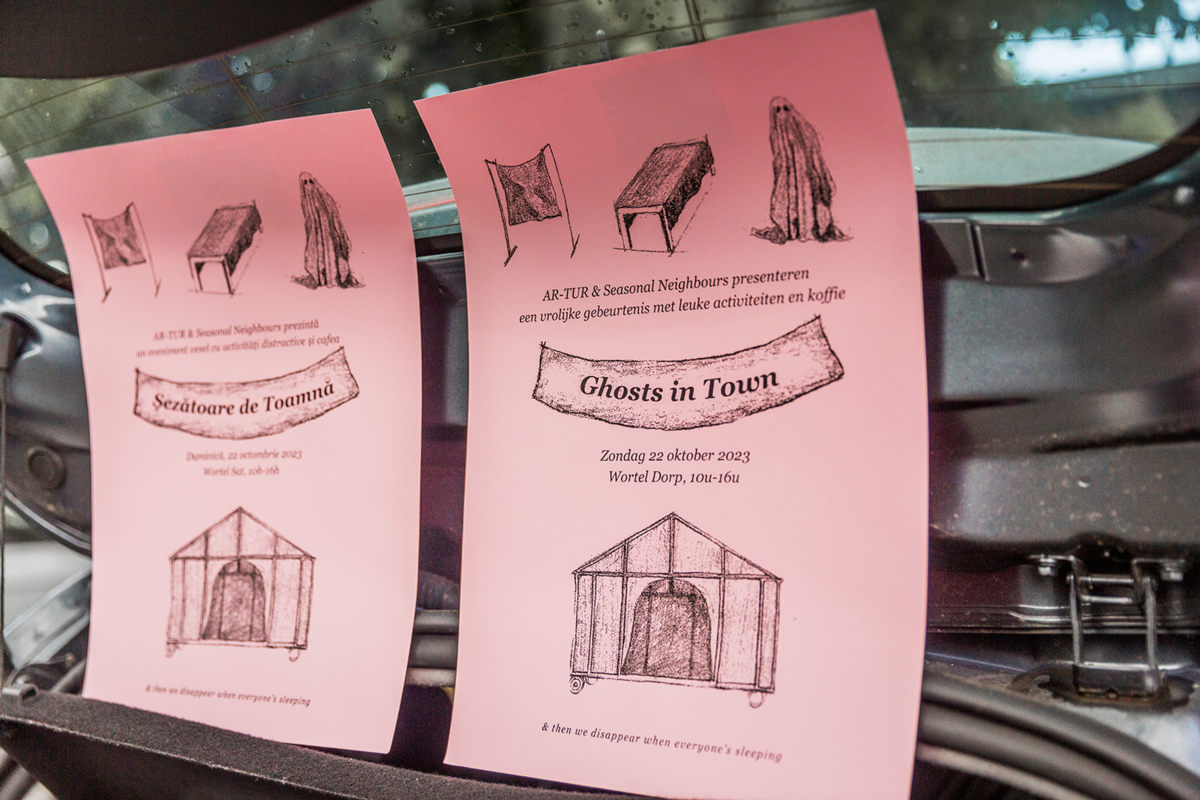 AR-TUR & Seasonal Neighbours prezintă
un eveniment vesel cu activități distractive și cafea
Șezătoare de Toamnă
Duminică, 22 octombrie 2023
Wortel Sat, 10h-16h
& then we disappear when everyone's sleeping
AR-TUR & Seasonal Neighbours presenteren
een vrolijke gebeurtenis met leuke activiteiten en koffie
Ghosts in Town
Zondag 22 oktober 2023
Wortel Dorp, 10u-16u
& then we disappear when everyone's sleeping